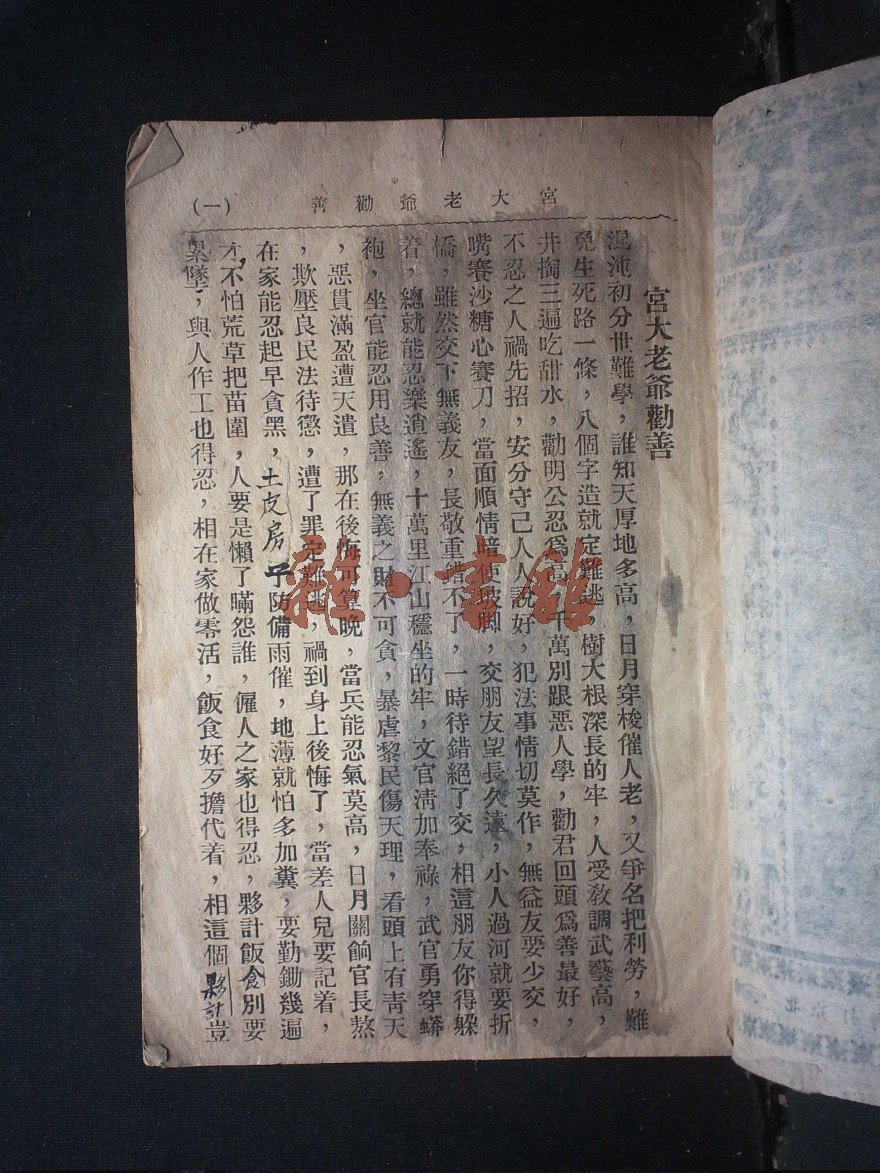 宮大老爺勸善
(一)
宮大老爺勸善
混沌初分世難學，誰知天厚地多高，日月穿梭催人老，又爭名把利勞，難
免生死路一條，八個字造就定難逃，樹大根深長的牢，人受敎調武藝高，
井掏三遍吃甜水，勸明公忍爲高，千萬別跟惡人學，勸君回頭爲善最好，
不忍之人禍先招，安分守己人人說好，犯法事情切莫作，無益友要少交，
嘴賽沙糖心賽刀，當面順情暗使坡脚，交朋友望長久遠，小人過河就要折
橋，雖然交下無義友，長敬重錯不了，一時待錯絕了交，相這朋友你得躱
着，總就能忍樂逍遙，十萬里江山穩坐的牢，文官淸加奉祿，武官勇穿蟒
袍，坐官能忍用良善，無義之財不可貪，暴虐黎民傷天理，看頭上有靑天
，惡貫滿盈遭天遣，那在後悔可算晚，當兵能忍氣莫高，日月關餉官長熬
，欺壓良民法待懲，遭了罪定難逃，禍到身上後悔了，當差人兒要記着，
在家能忍起早貪黑，土皮房子防備雨催，地薄就怕多加糞，要勤鋤幾遍
才不怕荒草把苗圍，人要是懶了瞞怨誰，僱人之家也得忍，夥計飯食別要
累墜，與人作工也得忍，相在家做零活，飯食好歹擔代着，相這個夥計豈
雜·書館